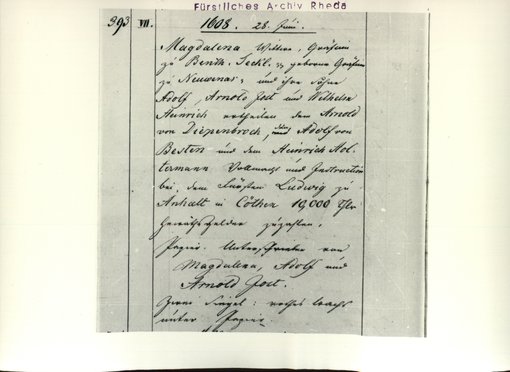 Fürstliches Archiv Rheda
393 VII. 1608. 28. Juni.
Magdalena Wittwe, Gräfinn
zu Benth. Teckl. geborne Gräfinn
zu Neuwenar und ihre Söhne
Adolf, Arnold Jost und Wilhelm
Heinrich ertheilen dem Arnold
von Diepenbroch, Adolf von
Besten und dem Heinrich Hol-
termann Vollmacht und Instruction
bei dem Fürsten Ludwig zu
Anhalt in Cöthen 10,000 Thlr
heirathsgelder zuzahlen.
Papier. Unterschrieben von
Magdalena, Adolf und
Arnold Jost.
Siegel: rothes Wachs
unter Papier